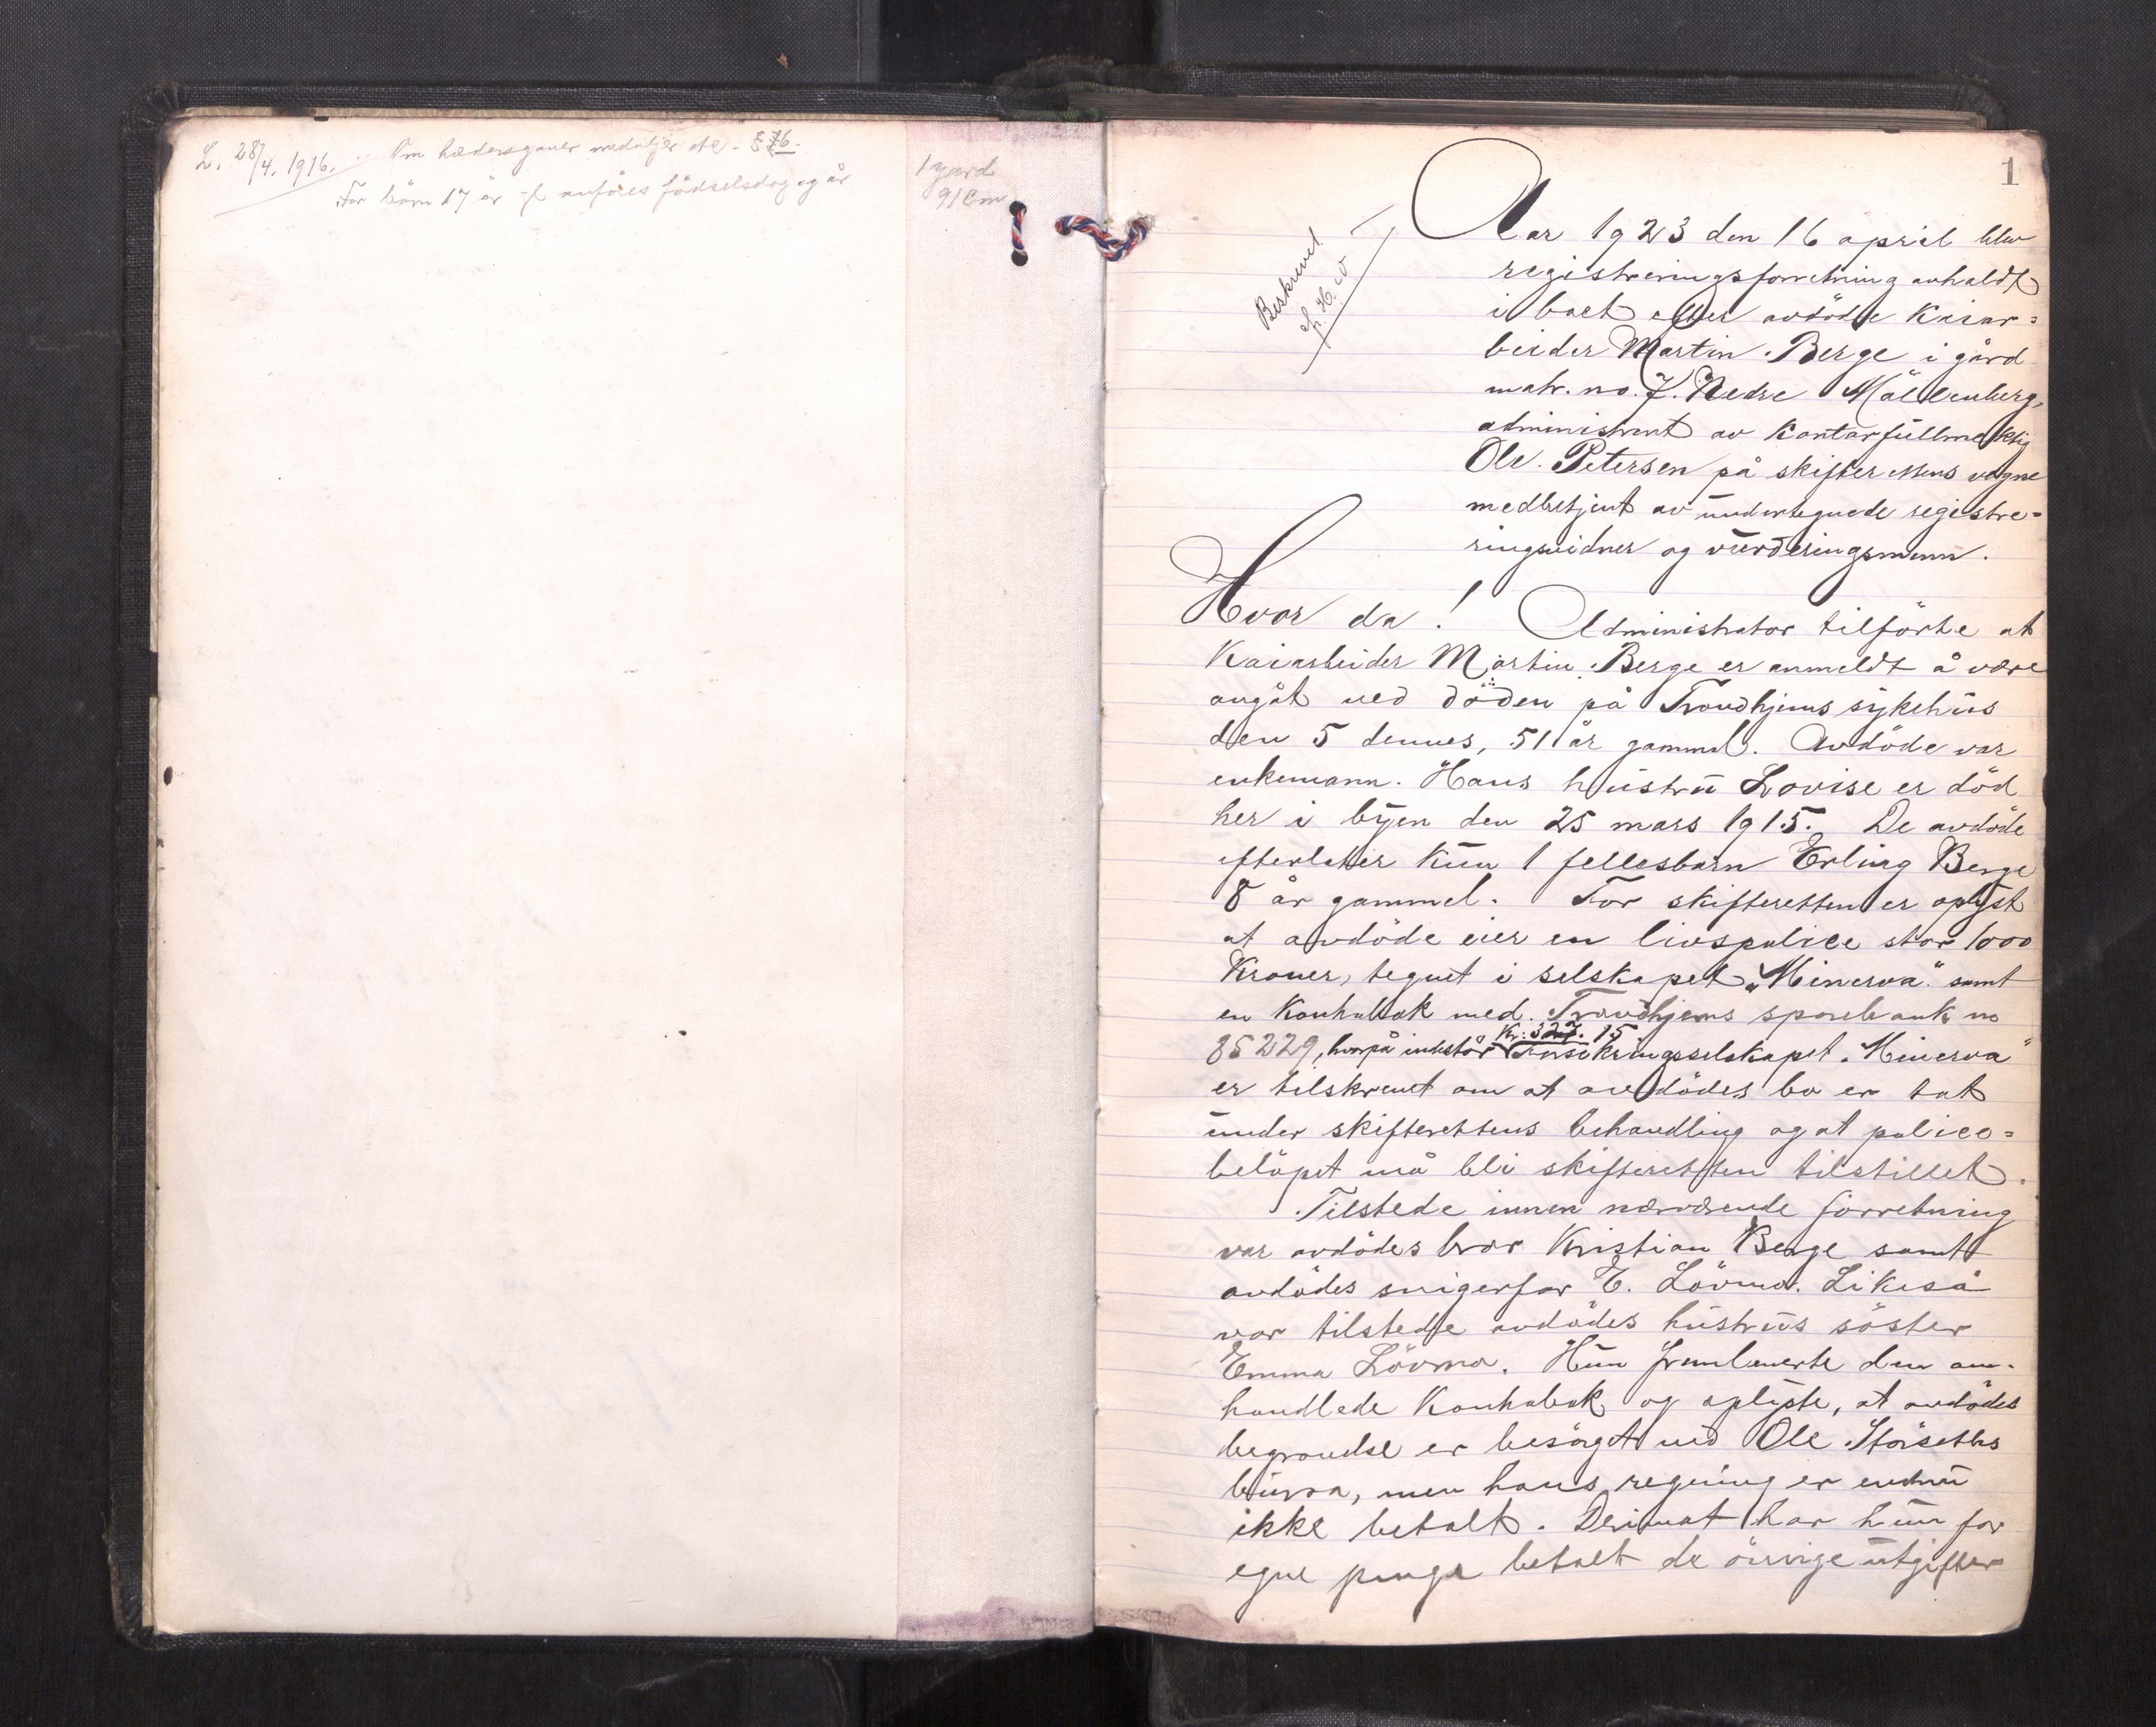 L. 28/4. 1916. Om hædersgaver medaljer etc. § 76.
For børn 17 år anføres fødselsdag og år
1 yard
91 Cm
1
Beskrevet
Aar 1923 den 16 april blev
registreringsforretning avholdt
i boet efter avdöde Kaiar=
beider Martin Berge i gård
matr. no. 7. Nedre Möllenberg,
administrert av Kontorfullmektig
Ole Petersen på skifterettens vegne
medbetjent av undertegnede registre=
ringsvidner og vurderingsmenn.
Hvor da! Administrator tilförte at
Kaiarbeider Martin Berge er anmeldt å være
avgåt ved döden på Trondhjems sykehus
den 5 dennes, 51 år gammel. Avdöde var
enkemann. Hans hustru Lovise er död
her i byen den 25 mars 1915. De avdöde
efterlater kun 1 fellesbarn Erling Berge
8 år gammel. For skifteretten er oplyst
at avdöde eier en livspolice stor 1000
Kroner, tegnet i selskapet „Minerva" samt
en Kontrabok med Trondhjems sparebank no
85229, hvorpå indestår Kr: 327.15 Forsikringsselskapet „Minerva"
er tilskrevet om at avdödes bo er tat
under skifterettens behandling og at police=
belöpet må bli skifteretten tilstillet.
Tilstede innen nærværende forretning
var avdödes bror Kristian Berge samt
avdödes svigerfar E. Lövmo. Likeså
var tilstede avdödes hustrus söster
Emma Lövmo. Hun fremleverte den om=
handlede Kontrabok og oplyste, at avdödes
begravelse er besörget ved Ole Störseths
byrå, men hans regning er endnu
ikke betalt. Derimot har hun for
egne penge betalt de övrige utgifter